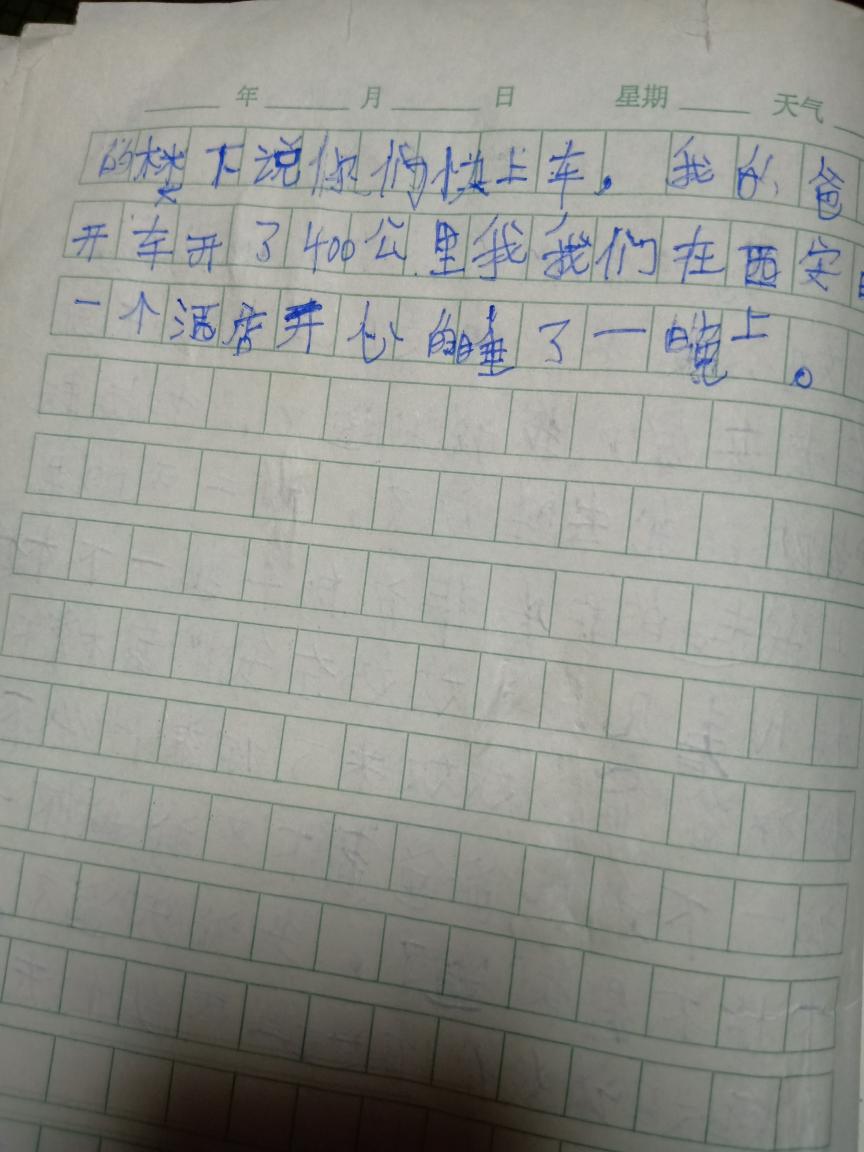 年 月 日 星期 天气
的楼下说你们快上车。 我的爸
开车开了400公里我我们在西安
一个酒店开心的睡了一晚上。